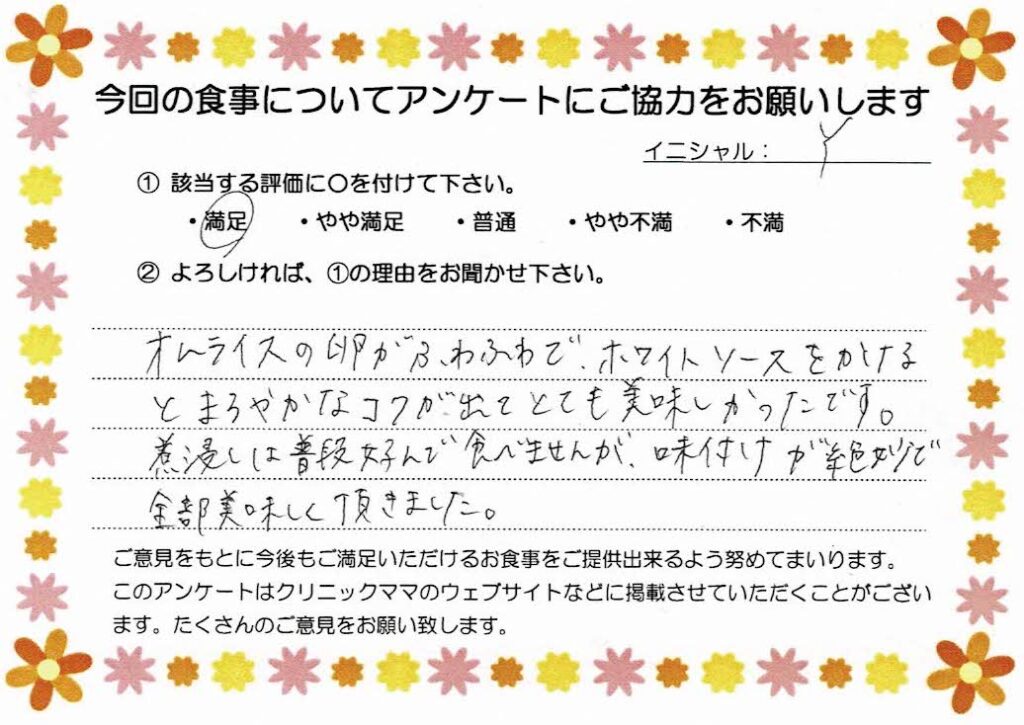 今回の食事についてアンケートにご協力をお願いします
イニシャル： Y
① 該当する評価に〇を付けて下さい。
・満足 ・やや満足 ・普通 ・やや不満 ・不満
② よろしければ、①の理由をお聞かせ下さい。
オムライスの卵がふわふわで、ホワイトソースをかける
とまろやかなコクが出てとても美味しかったです。
煮浸しは普段好んで食べませんが、味付けが絶妙で
全部美味しく頂きました。
ご意見をもとに今後もご満足いただけるお食事をご提供出来るよう努めてまいります。
このアンケートはクリニックママのウェブサイトなどに掲載させていただくことがござい
ます。たくさんのご意見をお願い致します。